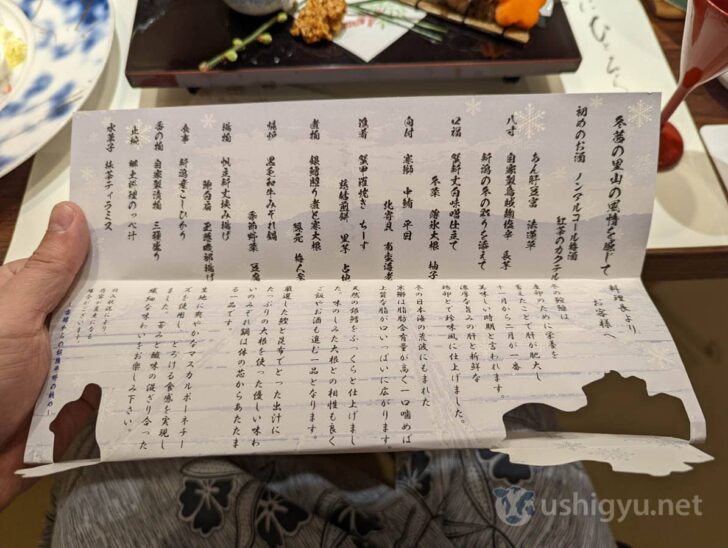 冬茜の里山の風情を感じて
初めのお酒 ノンアルコール梅酒
紅茶のカクテル
八寸
あん肝豆富 法蓮草
自家製烏賊麹塩辛 長芋
新潟の冬の彩りを添えて
口福 蟹新丈白味噌仕立て
冬菜 薄氷大根 柚子
向付 寒鰤 中鮪 平目
北寄貝 南蛮海老
進肴 蟹甲羅焼き ちーず
慈姑煎餅 里芋
煮物 銀鱈照り煮と寒大根
鍋物 黒毛和牛みぞれ鍋
季節野菜 豆腐
揚物 帆立新丈挟み揚げ
食事 新潟産こしひかり
香の物 自家製漬物 三種盛り
止椀 郷土料理のっぺ汁
水菓子 抹茶ティラミス
料理長より
お客様へ
冬の鮟鱇は
産卵のために栄養を
蓄えたことで肝が肥大し
十一月から二月が一番
美味しい時期と言われます。
濃厚な旨みの肝と新鮮な
鶏卵とで珍味風に仕上げました。
冬の日本海の荒波にもまれた
寒鰤は脂肪含有量が高く一口噛めば
上質な脂が口いっぱいに広がります
天然の銀鱈をふっくらと仕上げまし
た。味のしみた大根との相性も良く
ご飯やお酒も進む一品となります。
厳選した鰹と昆布でとった出汁に
たっぷりの大根を使った優しい味わ
いのみぞれ鍋は体の芯からあたたま
る一品です。
生地に爽やかなマスカルポーネチー
ズを使用し、とろける食感を実現し
ました。苦みと酸味の混ざり合った
繊細な味わいをお楽しみ下さい。
ushigyu.net